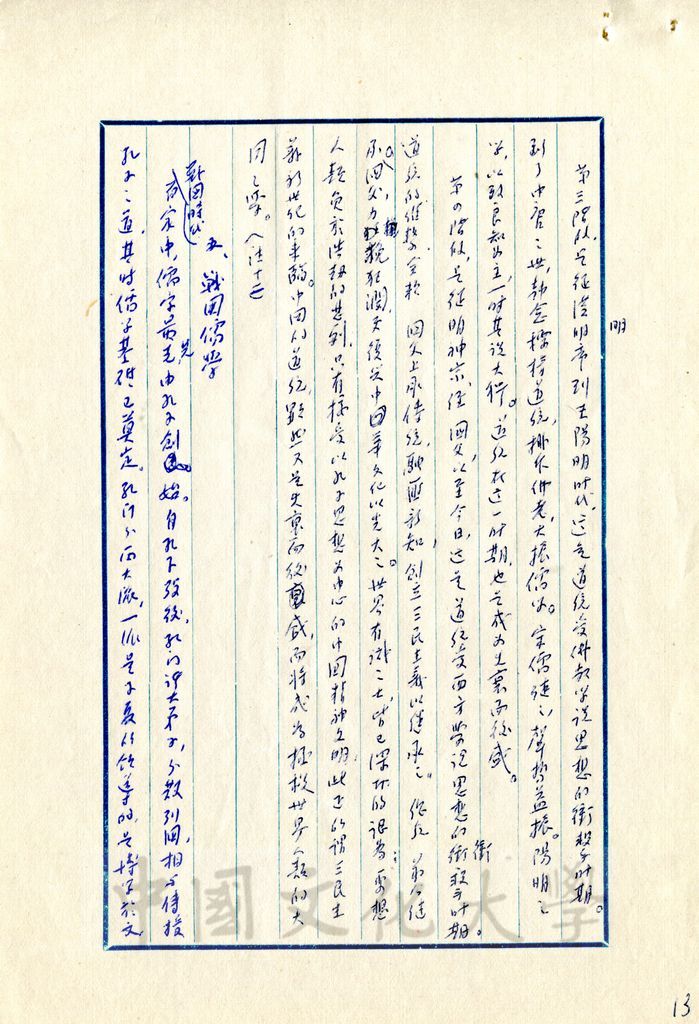 明
第三階段，是從漢明帝到王陽明時代，這是道統受佛教學說思想的衝擊時期。
到了中唐之世，韓愈標榜道統，排斥佛老，大振儒學。宋儒繼之，聲勢益振。陽明之
學，以致良知為主，一時其說大行。道統在這一時期，也是成為先衰而後盛。
第四階段，是從明神宗，經 國父以至今日，這是道統受西方學說思想的衝擊時期。
衝
道統的維繫 國父上承傳統，融匯新知，創立三民主義以繼承之。 蔣公繼
承國父力挽狂瀾，中華文化以光大之。世界有識之士，皆已深切的認為：要想
人類免於浩劫的悲劇，只有接受以孔子思想為中心的中國精神文明，此正所謂三民主
義新世紀的來臨。中國的道統，顯然又是先衰而後盛，而將成為拯救世界人類的大
同之學。
五、戰國儒學
戰國時代
百家中，儒家最先由孔子創始。自孔子歿後，孔門諸大弟子，分散列國，相與傳授
孔子之道，其時儒學基礎已奠定。孔門分兩大派，一派是子夏所領導的，是博學於文
中國文化大學
13